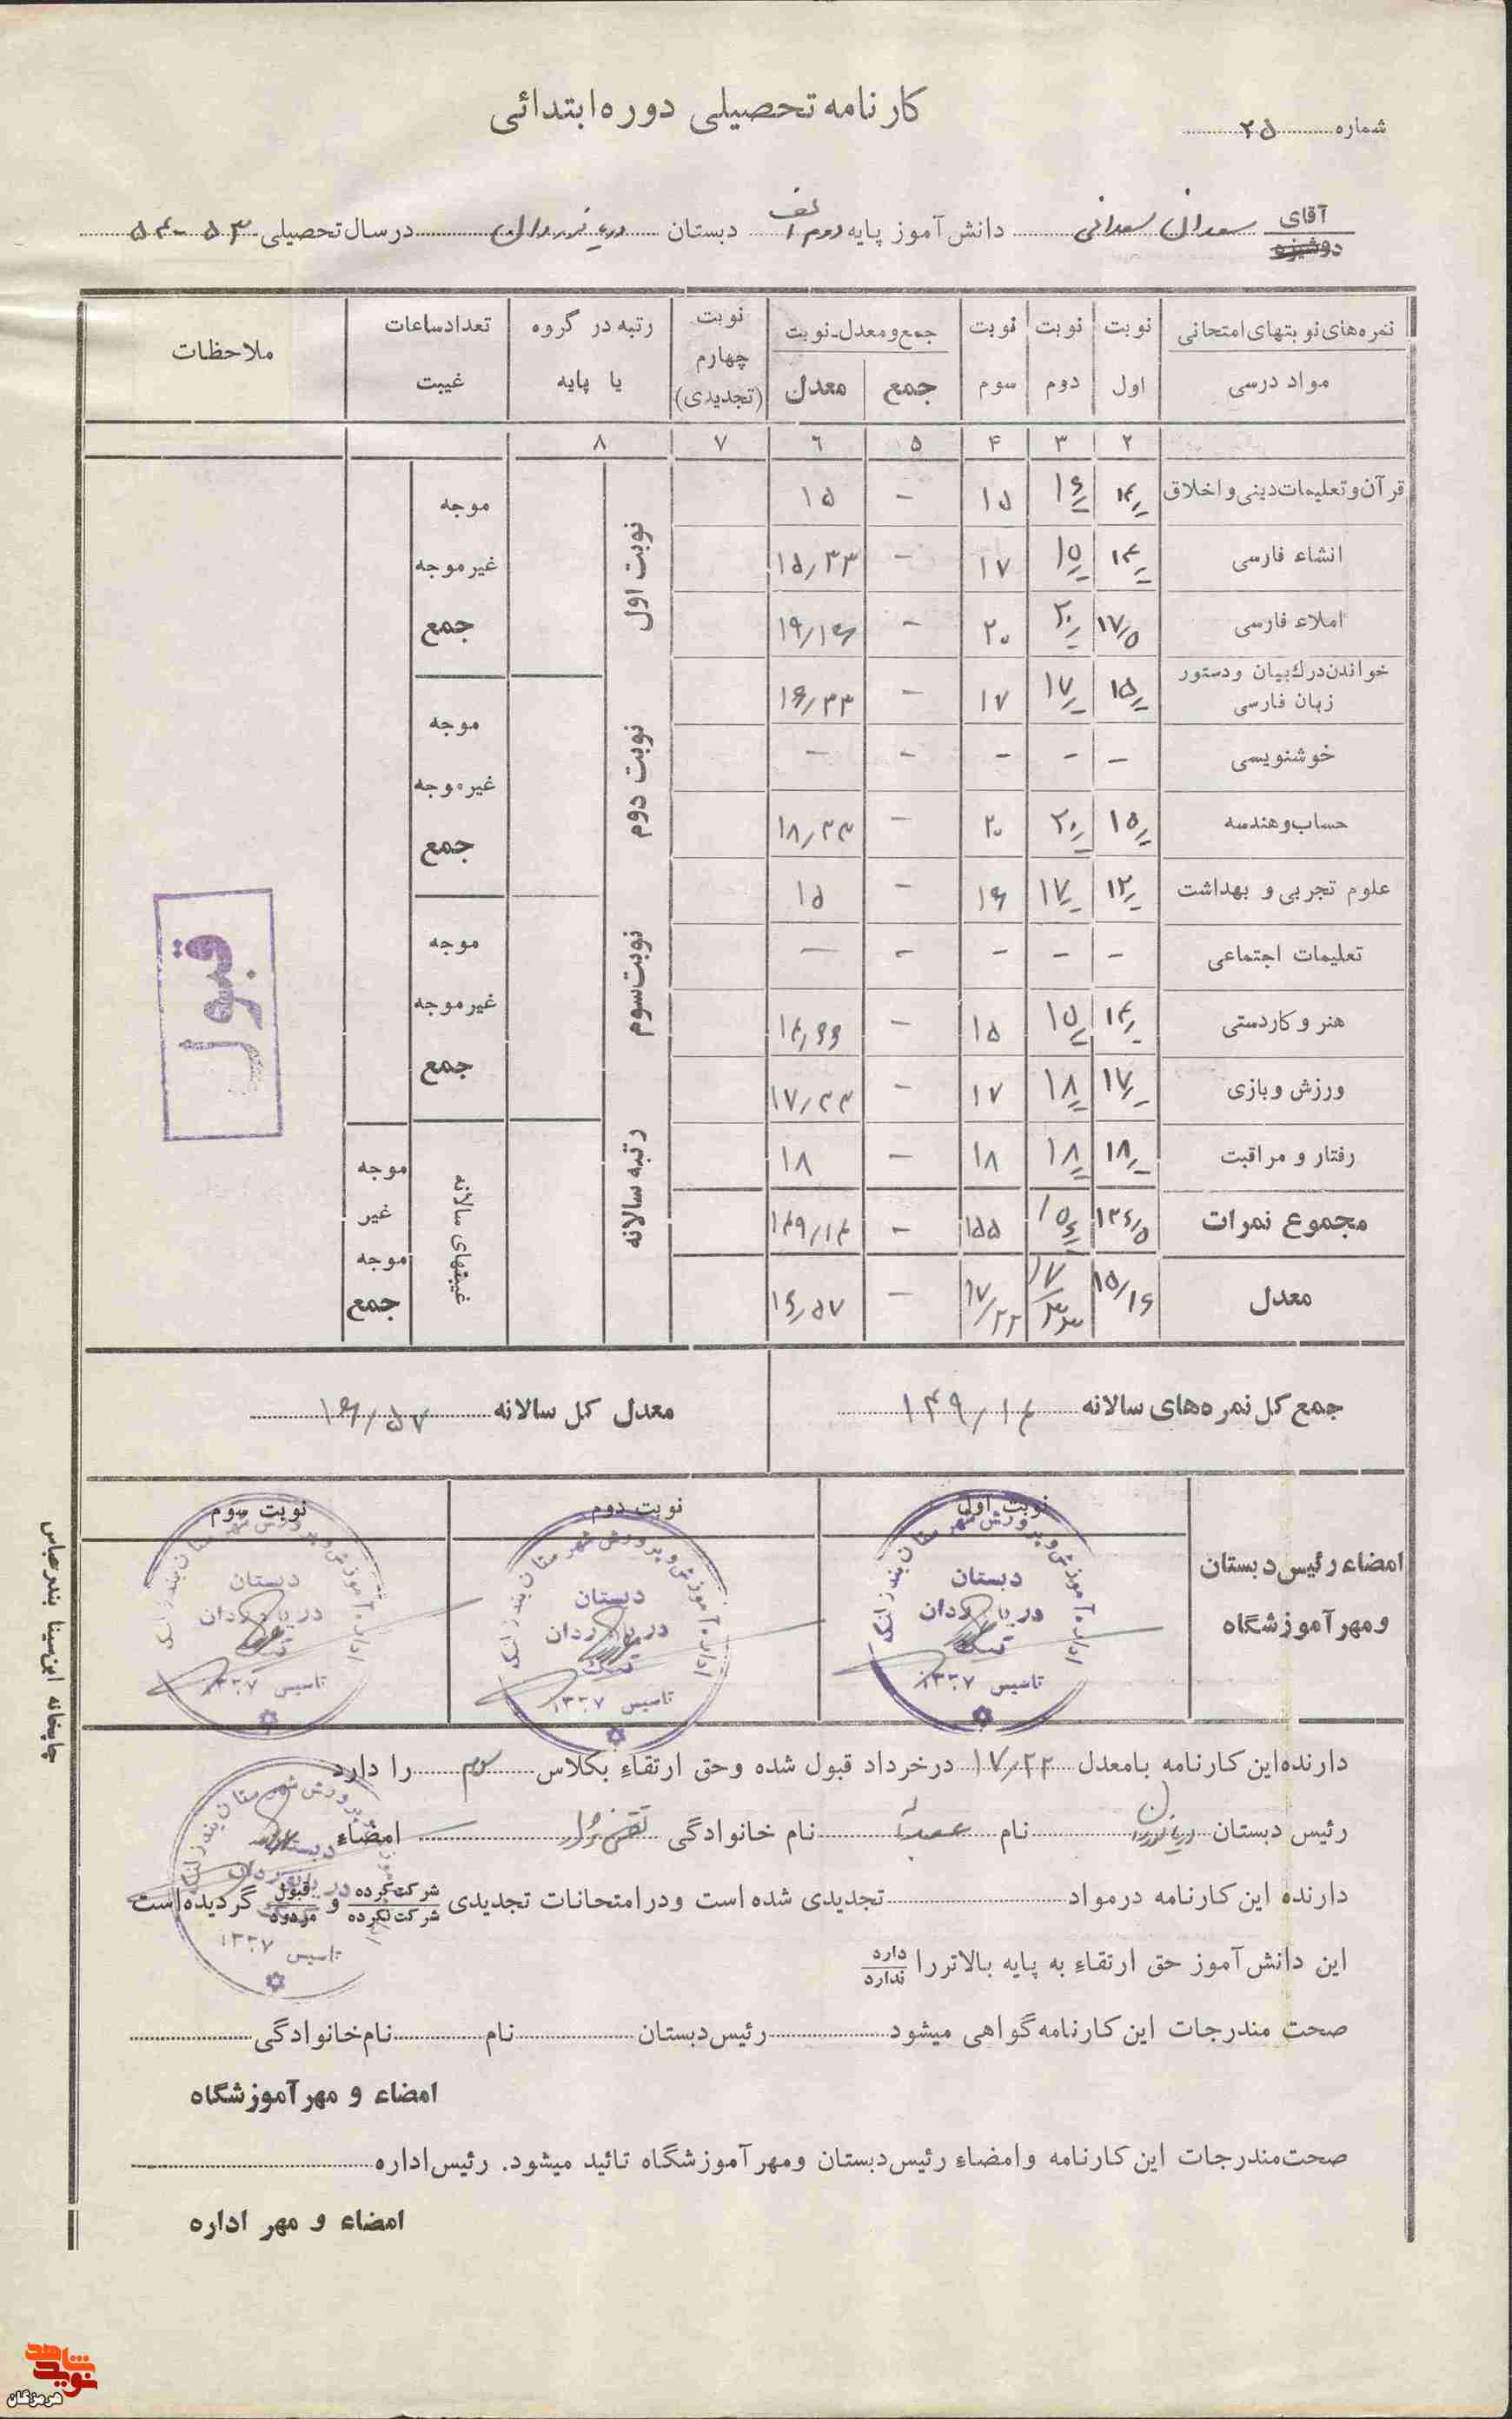 کارنامه تحصیلی دوره ابتدائی
شماره ۲۵
آقای
دوشیزه
دانش آموز پایه دوم الف دبستان دریانوردان در سال تحصیلی ۵۳-۵۴
نمره‌های نوبتهای امتحانی نوبت نوبت نوبت جمع و معدل نوبت نوبت رتبه در گروه تعداد ساعات ملاحظات
مواد درسی اول دوم سوم جمع معدل چهارم (تجدیدی) یا پایه غیبت
۲ ۳ ۴ ۵ ۶ ۷ ۸
قرآن و تعلیمات دینی و اخلاق ۱۴ ۱۶ ۱۵ - ۱۵
انشاء فارسی ۱۴ ۱۵ ۱۷ - ۱۵/۳۳
املاء فارسی ۱۷/۵ ۲۰ ۲۰ - ۱۹/۱۶
خواندن درك بیان و دستور زبان فارسی ۱۵ ۱۷ ۱۷ - ۱۶/۳۳
خوشنویسی - - - - -
حساب و هندسه ۱۵ ۲۰ ۲۰ - ۱۸/۳۳
علوم تجربی و بهداشت ۱۲ ۱۷ ۱۶ - ۱۵
تعلیمات اجتماعی - - - - -
هنر و کاردستی ۱۴ ۱۵ ۱۵ - ۱۴/۶۶
ورزش و بازی ۱۷ ۱۸ ۱۷ - ۱۷/۳۳
رفتار و مراقبت ۱۸ ۱۸ ۱۸ - ۱۸
مجموع نمرات ۱۳۶/۵ ۱۵۶ ۱۵۵ - ۱۴۹/۱۴
معدل ۱۵/۱۶ ۱۷/۳۳ ۱۷/۲۲ - ۱۶/۵۷
نوبت اول
نوبت دوم
نوبت سوم
رتبه سالانه
موجه
غیرموجه
جمع
موجه
غیرموجه
جمع
موجه
غیرموجه
جمع
غیبتهای سالانه
موجه
غیر
موجه
جمع
قبول
جمع کل نمره‌های سالانه ۱۴۹/۱۴ معدل کل سالانه ۱۶/۵۷
امضاء رئیس دبستان
و مهر آموزشگاه
نوبت اول نوبت دوم نوبت سوم
اداره آموزش و پرورش شهرستان بندرلنگه
دبستان
دریانوردان
تاسیس ۱۳۳۷
اداره آموزش و پرورش شهرستان بندرلنگه
دبستان
دریانوردان
تاسیس ۱۳۳۷
اداره آموزش و پرورش شهرستان بندرلنگه
دبستان
دریانوردان
تاسیس ۱۳۳۷
دارنده این کارنامه بامعدل ۱۷/۲۲ در خرداد قبول شده و حق ارتقاء بکلاس سوم را دارد
رئیس دبستان دریانوردان نام نام خانوادگی امضاء
دارنده این کارنامه در مواد تجدیدی شده است و در امتحانات تجدیدی شرکت کرده شرکت نکرده و قبول مردود گردیده است
این دانش آموز حق ارتقاء به پایه بالاتر را دارد ندارد
صحت مندرجات این کارنامه گواهی میشود رئیس دبستان نام نام خانوادگی
امضاء و مهر آموزشگاه
صحت مندرجات این کارنامه و امضاء رئیس دبستان و مهر آموزشگاه تائید میشود. رئیس اداره
امضاء و مهر اداره
چاپخانه ابن سینا بندرعباس
نوید شاهد
هرمزگان